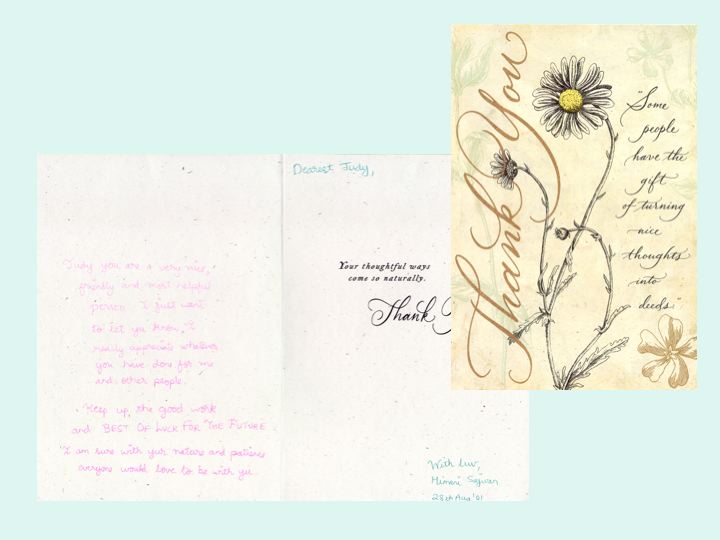 Thank You
"Some
people
have the
gift
of turning
nice
thoughts
into
deeds."
Dearest Judy,
Your thoughtful ways
come so naturally.
Thank
Judy you are a very nice,
friendly and most helpful
person. I just want
to let you know, I
really appreciate whatever
you have done for me
and other people.
Keep up the good work
and BEST OF LUCK FOR THE FUTURE
I am sure with your nature and patience
everyone would love to be with you.
With luv,
28th Aug '01